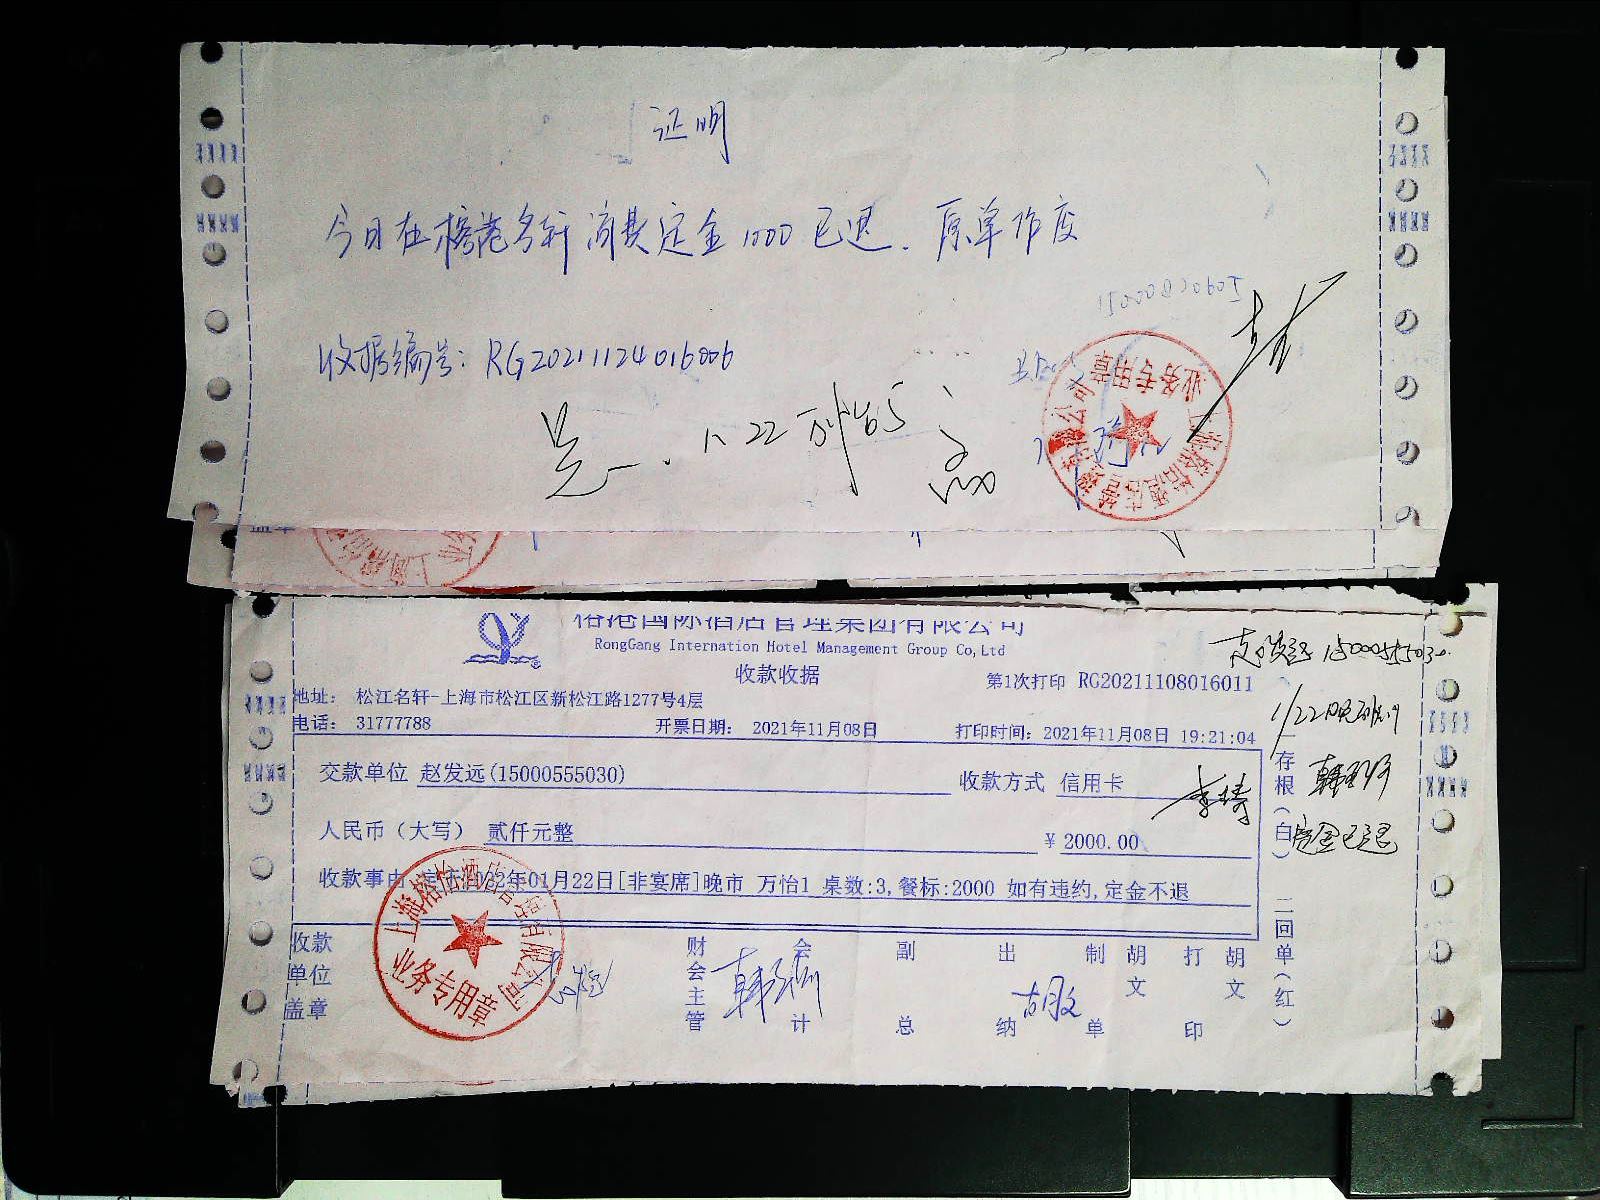 证明
今日在榕港名轩消费定金1000已退.原单作废
收据编号:RG20211124016006
1.22
业务专用章
榕港国际酒店管理集团有限公司
RongGang Internation Hotel Management Group Co,Ltd
收款收据
第1次打印 RG20211108016011
15000555030
地址: 松江名轩-上海市松江区新松江路1277号4层
电话: 31777788 开票日期: 2021年11月08日 打印时间: 2021年11月08日 19:21:04
1/22
交款单位 赵发远(15000555030) 收款方式 信用卡
人民币(大写) 贰仟元整 ¥ 2000.00
定金已退
收款事由 2022年01月22日[非宴席]晚市 万怡1 桌数:3,餐标:2000 如有违约,定金不退
一存根(白) 二回单(红)
业务专用章
收款单位盖章 财会主管 会计 副总 出纳 胡文 制单 胡文 打印 胡文